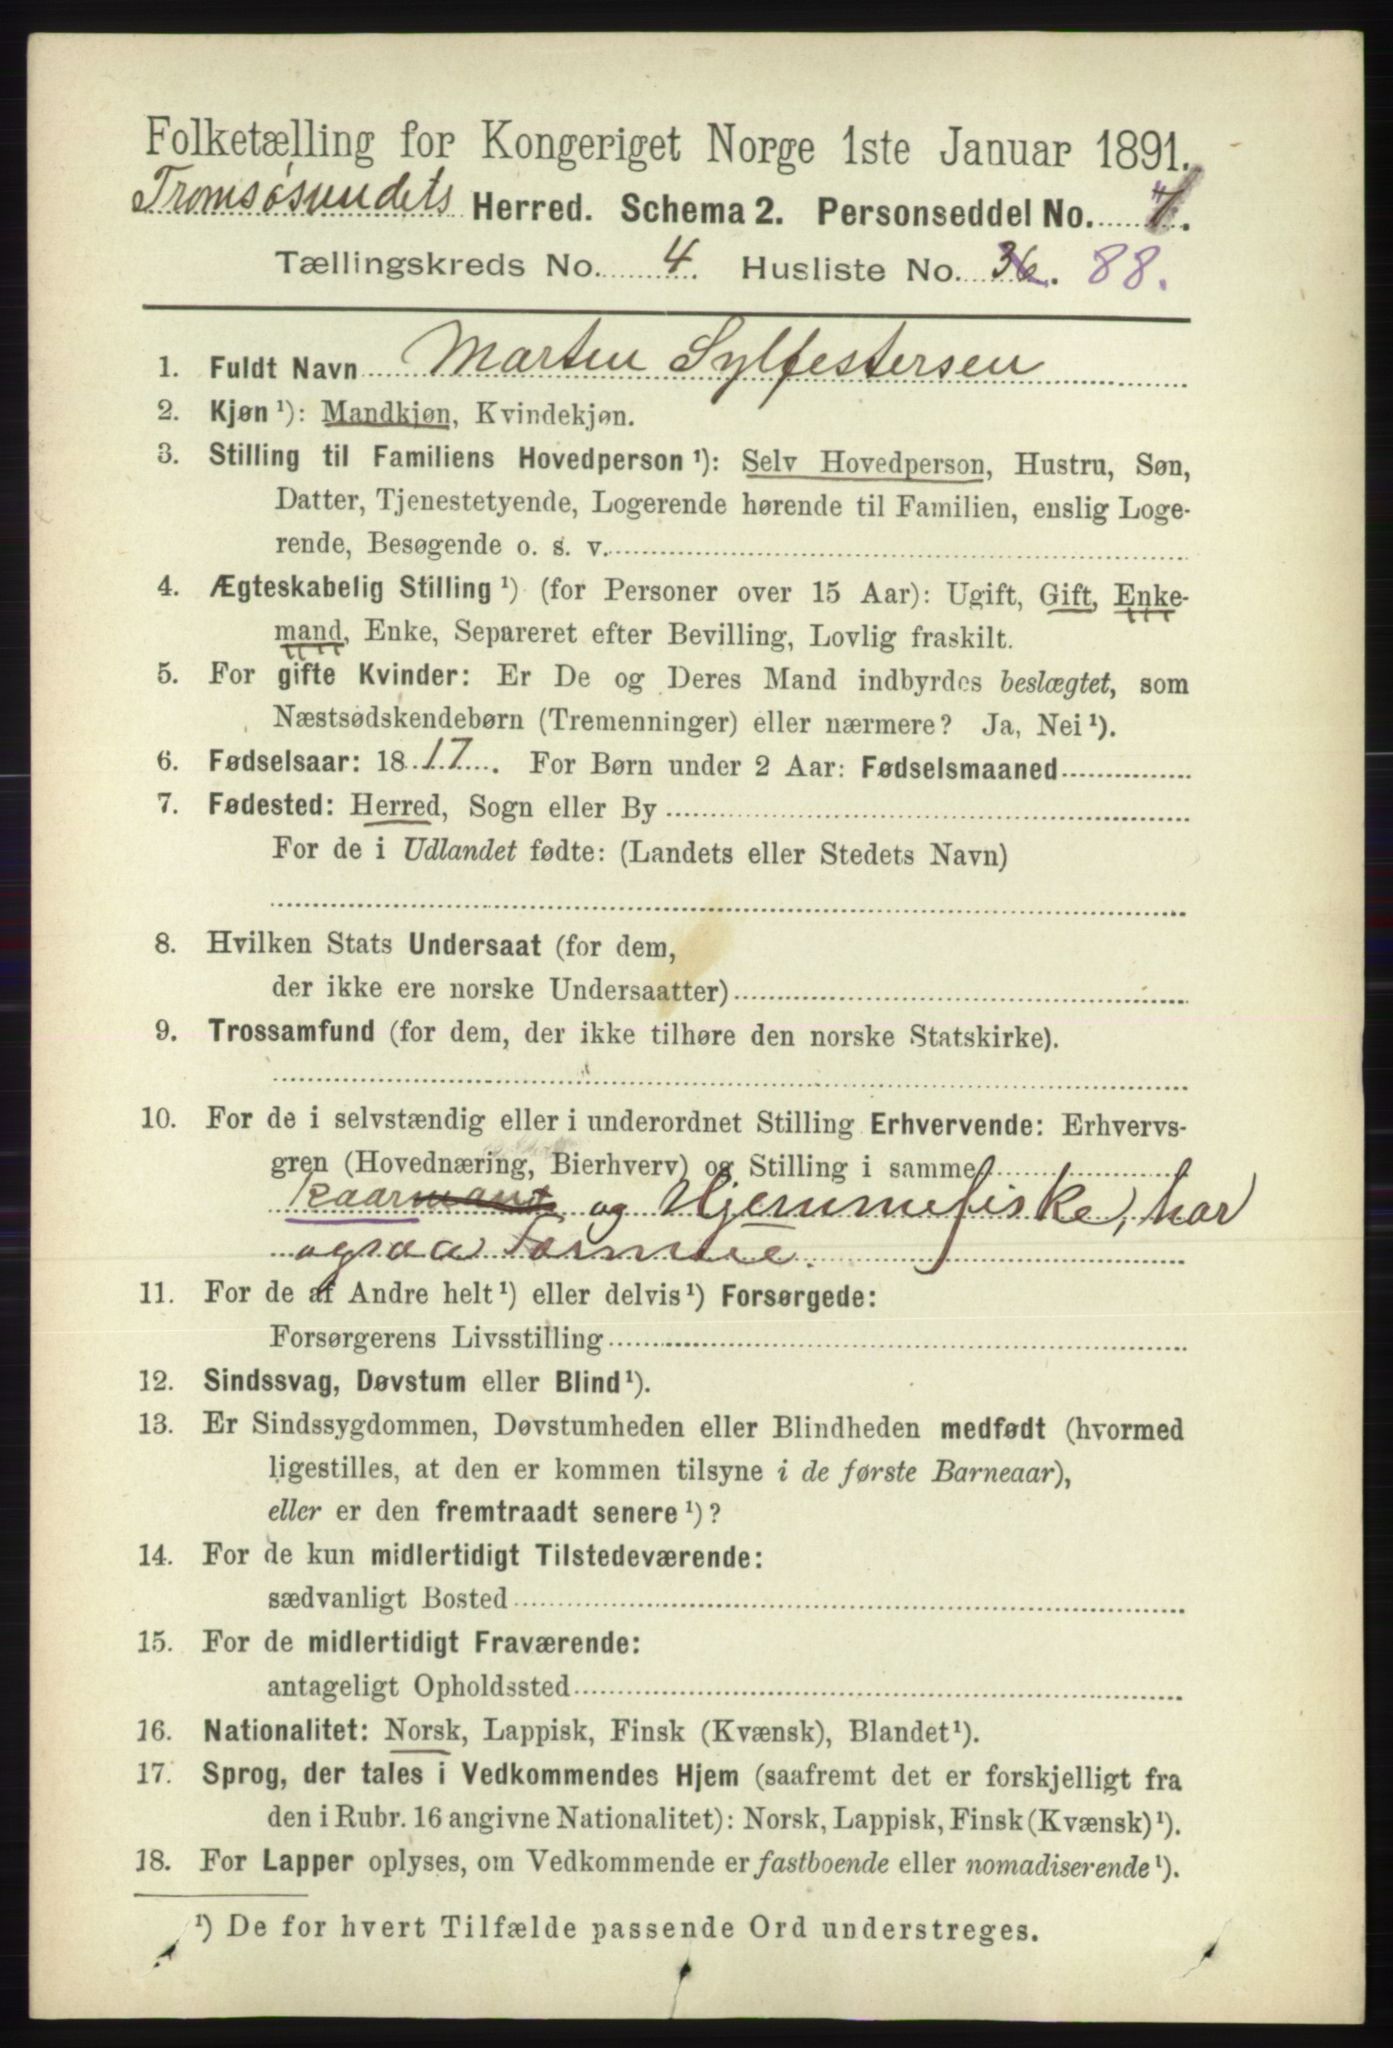 Folketælling for Kongeriget Norge 1ste Januar 1891.
Tromsøsundets Herred. Schema 2. Personseddel No. 4.
Tællingskreds No. 4. Husliste No. 36. 88.
1. Fuldt Navn Martin Sylfestersen
2. Kjøn ¹): Mandkjøn, Kvindekjøn.
3. Stilling til Familiens Hovedperson ¹): Selv Hovedperson, Hustru, Søn,
Datter, Tjenestetyende, Logerende hørende til Familien, enslig Loge-
rende, Besøgende o. s. v.
4. Ægteskabelig Stilling ¹) (for Personer over 15 Aar): Ugift, Gift, Enke-
mand, Enke, Separeret efter Bevilling, Lovlig fraskilt.
5. For gifte Kvinder: Er De og Deres Mand indbyrdes beslægtet, som
Næstsødskendebørn (Tremenninger) eller nærmere? Ja, Nei ¹).
6. Fødselsaar: 1817. For Børn under 2 Aar: Fødselsmaaned
7. Fødested: Herred, Sogn eller By
For de i Udlandet fødte: (Landets eller Stedets Navn)
8. Hvilken Stats Undersaat (for dem,
der ikke ere norske Undersaatter)
9. Trossamfund (for dem, der ikke tilhøre den norske Statskirke).
10. For de i selvstændig eller i underordnet Stilling Erhvervende: Erhvervs-
gren (Hovednæring, Bierhverv) og Stilling i samme
Kaarmand og Hjemmefiske, har
ogsaa
11. For de af Andre helt ¹) eller delvis ¹) Forsørgede:
Forsørgerens Livsstilling
12. Sindssvag, Døvstum eller Blind ¹).
13. Er Sindssygdommen, Døvstumheden eller Blindheden medfødt (hvormed
ligestilles, at den er kommen tilsyne i de første Barneaar),
eller er den fremtraadt senere ¹)?
14. For de kun midlertidigt Tilstedeværende:
sædvanligt Bosted
15. For de midlertidigt Fraværende:
antageligt Opholdssted
16. Nationalitet: Norsk, Lappisk, Finsk (Kvænsk), Blandet ¹).
17. Sprog, der tales i Vedkommendes Hjem (saafremt det er forskjelligt fra
den i Rubr. 16 angivne Nationalitet): Norsk, Lappisk, Finsk (Kvænsk) ¹).
18. For Lapper oplyses, om Vedkommende er fastboende eller nomadiserende ¹).
¹) De for hvert Tilfælde passende Ord understreges.